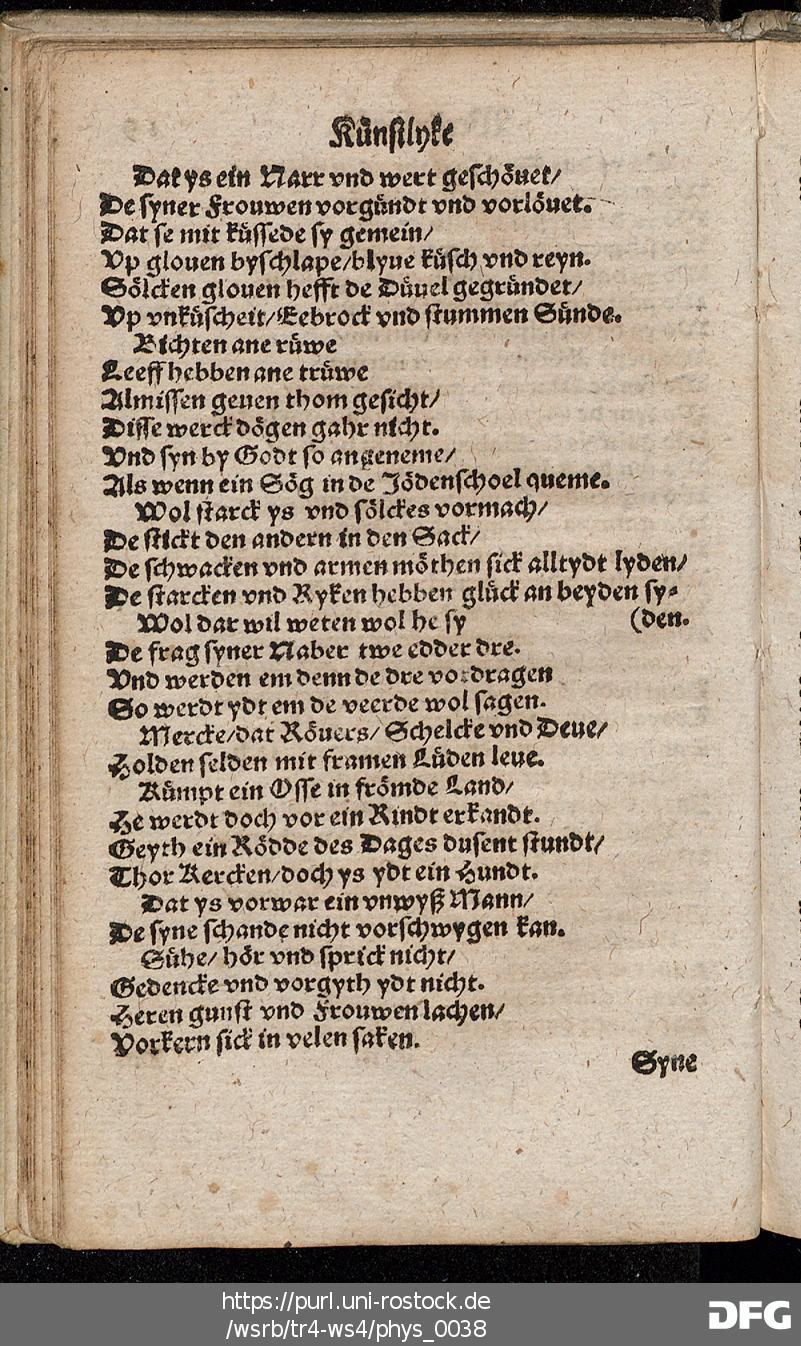 Künstlyke
Dat ys ein Narr vnd wert geschöuet/
De syner Frouwen vorgündt vnd vorlöuet.
Dat se mit küssede sy gemein/
Vp glouen byschlape/blyue küsch vnd reyn.
Sölcken glouen hefft de Düuel gegründet/
Vp vnküscheit/Eebrock vnd stummen Sünde.
Bichten ane rüwe
Leeff hebben ane trüwe
Almissen geuen thom gesicht/
Disse werck dögen gahr nicht.
Vnd syn by Godt so angeneme/
Als wenn ein Sög in de Jödenschoel queme.
Wol starck ys vnd sölckes vormach/
De stickt den andern in den Sack/
De schwacken vnd armen möthen sick alltydt lyden/
De starcken vnd Ryken hebben glück an beyden sy-
Wol dar wil weten wol he sy (den.
De frag syner Naber twe edder dre.
Vnd werden em denn de dre vordragen
So werdt ydt em de veerde wol sagen.
Mercke/dat Röuers/Schelcke vnd Deue/
Holden selden mit framen Lüden leue.
Kümpt ein Osse in frömde Land/
He werdt doch vor ein Rindt erkandt.
Geyth ein Rödde des Dages dusent stundt/
Thor Kercken/doch ys ydt ein Hundt.
Dat ys vorwar ein vnwyß Mann/
De syne schande nicht vorschwygen kan.
Sühe/ hör vnd sprick nicht/
Gedencke vnd vorgyth ydt nicht.
Heren gunst vnd Frouwen lachen/
Vorkern sick in velen saken.
Syne
https://purl.uni-rostock.de
/wsrb/tr4-ws4/phys_0038
DFG